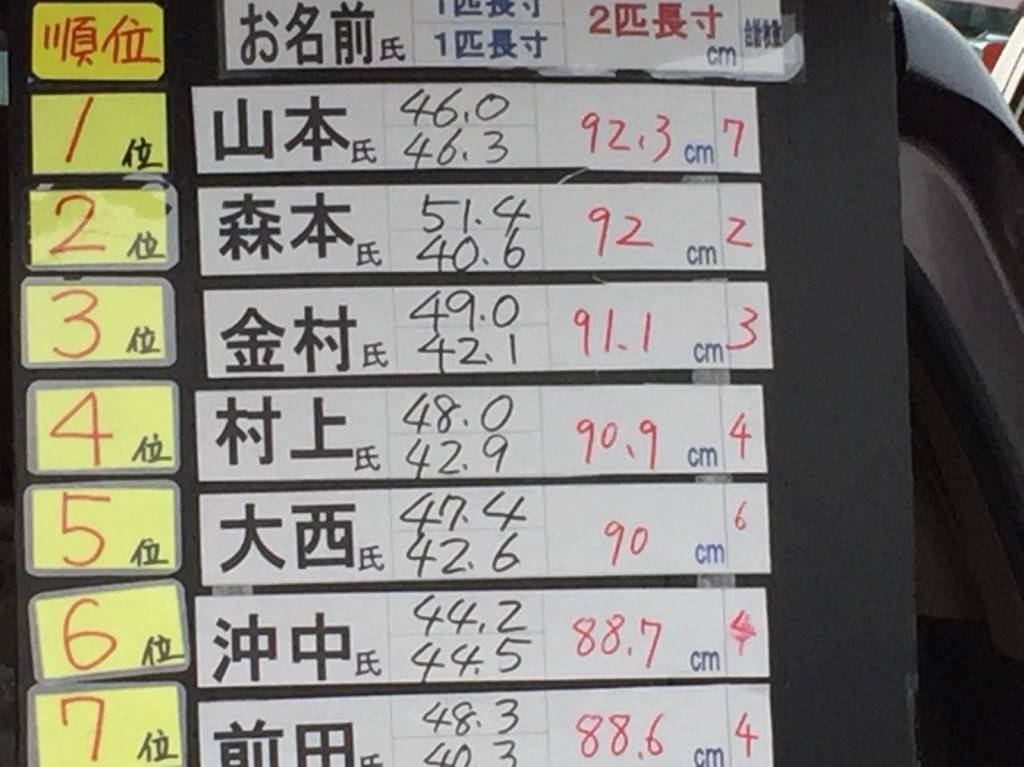 順位 お名前氏 1匹長寸 2匹長寸 cm 合計枚数
1匹長寸
1位 山本氏 46.0 92.3 cm 7
46.3
2位 森本氏 51.4 92 cm 2
40.6
3位 金村氏 49.0 91.1 cm 3
42.1
4位 村上氏 48.0 90.9 cm 4
42.9
5位 大西氏 47.4 90 cm 6
42.6
6位 沖中氏 44.2 88.7 cm 4
44.5
7位 前田氏 48.3 88.6 cm 4
40.3